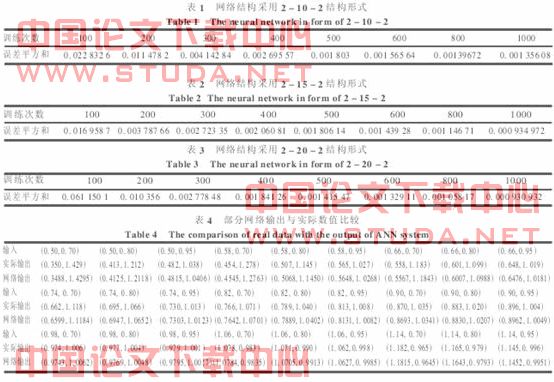 表 1 网络结构采用 2－10－2 结构形式
Table 1 The neural network in form of 2－10－2
训练次数 100 200 300 400 500 600 800 1000
误差平方和 0.022 832 6 0.011 478 2 0.004 142 84 0.002 695 57 0.001 803 0.001 565 64 0.00139672 0.001 356 08
中国论文下载中心
WWW.STUDA.NET
表 2 网络结构采用 2－15－2 结构形式
Table 2 The neural network in form of 2－15－2
训练次数 100 200 300 400 500 600 800 1000
误差平方和 0.016 958 7 0.003 787 66 0.002 723 35 0.002 060 81 0.001 806 14 0.001 439 28 0.001 146 71 0.000 934 972
表 3 网络结构采用 2－20－2 结构形式
Table 3 The neural network in form of 2－20－2
训练次数 100 200 300 400 500 600 800 1000
误差平方和 0.061 150 1 0.010 356 0.002 778 48 0.001 841 26 0.001 415 47 0.001 329 11 0.001 058 17 0.000 930 932
中国论文下载中心
www.studa.net
表 4 部分网络输出与实际数值比较
Table 4 The comparison of real data with the output of ANN system
输入 (0.50, 0.70) (0.50, 0.80) (0.50, 0.95) (0.58, 0.70) (0.58, 0.80) (0.58, 0.95) (0.66, 0.70) (0.66, 0.80) (0.66, 0.95)
实际输出 (0.350, 1.429) (0.413, 1.212) (0.482, 1.038) (0.454, 1.278) (0.507, 1.145) (0.565, 1.027) (0.558, 1.183) (0.601, 1.099) (0.648, 1.019)
网络输出 (0.3488, 1.4295) (0.4125, 1.2118) (0.4815, 1.0406) (0.4545, 1.2763) (0.5068, 1.1450) (0.5648, 1.0268) (0.5567, 1.1843) (0.6007, 1.0988) (0.6476, 1.0181)
输入 (0.74, 0.70) (0.74, 0.80) (0.74, 0.95) (0.82, 0.70) (0.82, 0.80) (0.82, 0.95) (0.90, 0.70) (0.90, 0.80) (0.90, 0.95)
实际输出 (0.662, 1.118) (0.695, 1.066) (0.730, 1.013) (0.766, 1.071) (0.789, 1.040) (0.813, 1.008) (0.870, 1.035) (0.883, 1.020) (0.896, 1.004)
网络输出 (0.6599, 1.1184) (0.6947, 1.0652) (0.7300, 1.0123) (0.7642, 1.0701) (0.7889, 1.0402) (0.8131, 1.0082) (0.8693, 1.0341) (0.8830, 1.0207) (0.8962, 1.0049)
输入 (0.98, 0.70) (0.98, 0.80) (0.98, 0.95) (1.06, 0.70) (1.06, 0.80) (1.06, 0.95) (1.14, 0.70) (1.14, 0.80) (1.14, 0.95)
实际输出 (1.062, 0.998) (1.182, 0.965) (1.165, 0.979) (1.145, 0.996)
网络输出 (1.0627, 0.9985) (1.1815, 0.9645) (1.1643, 0.9793) (1.1452, 0.9951)
中国论文下载中心